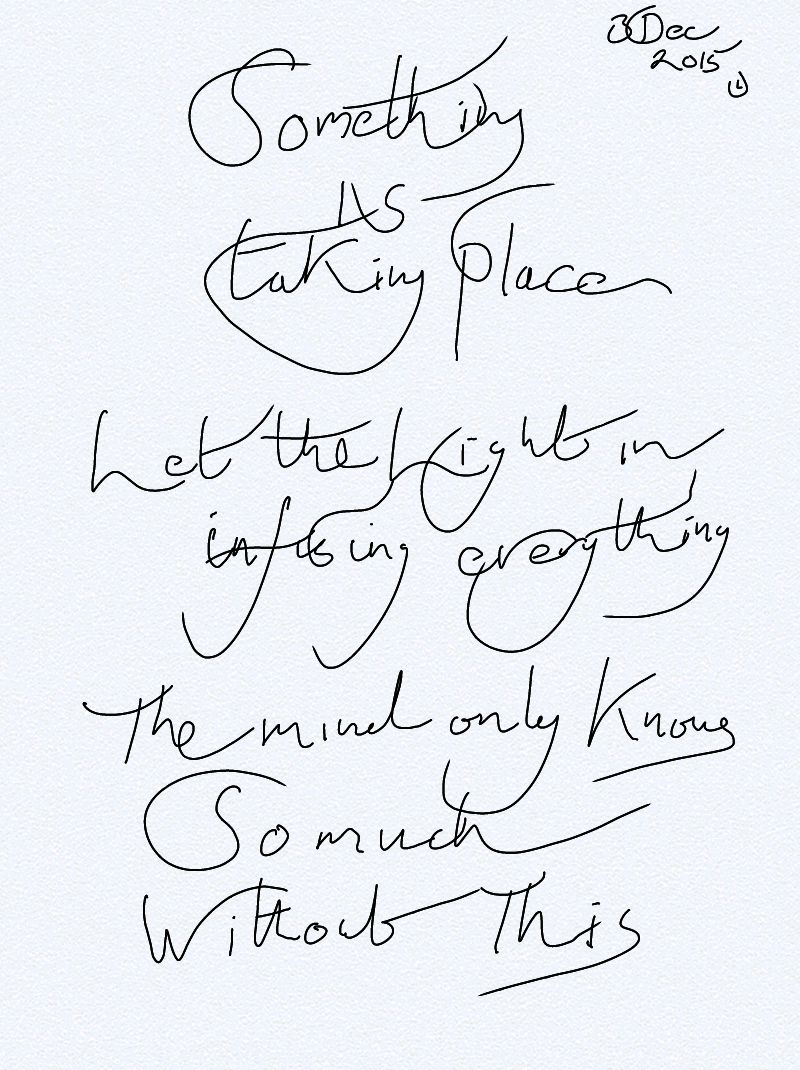 3 Dec
2015
Something
is
taking place
Let the Light in
infusing everything
The mind only Knows
So much
Without This